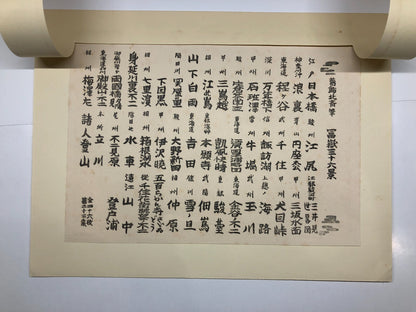 葛飾北斎筆 冨嶽三十六景
江戸 日本橋 駿州 江尻 江都駿河町 三井見世略図
神奈川沖 浪裏 青山 円座 甲州 三坂水面
東海道 程ヶ谷 武州 千住 甲州 犬目峠
深川 万年橋下 信州 諏訪湖 上総ノ 海路
甲州 石班澤 常州 牛堀 武州 玉川
東海道 金谷ノ不二
甲州 三島越 凱風快晴 東都 駿臺
相州 江の島 本願寺 武陽 佃島
山下白雨 東海道 吉田 雪ノ旦
関屋里 駿州 大野新田 相州 仲原
下目黒 伊沢暁 五百らかん寺
相州 七里濱 相州 箱根湖水 従千住花街眺望ノ不二
身延川裏不二 隠田ノ 水車 遠江 山中
両国橋夕陽見 尾州 不二見原 登戸浦
東海道品川 御殿山ノ不二 本所 立川
相州 梅澤左 諸人登山 全四十六枚